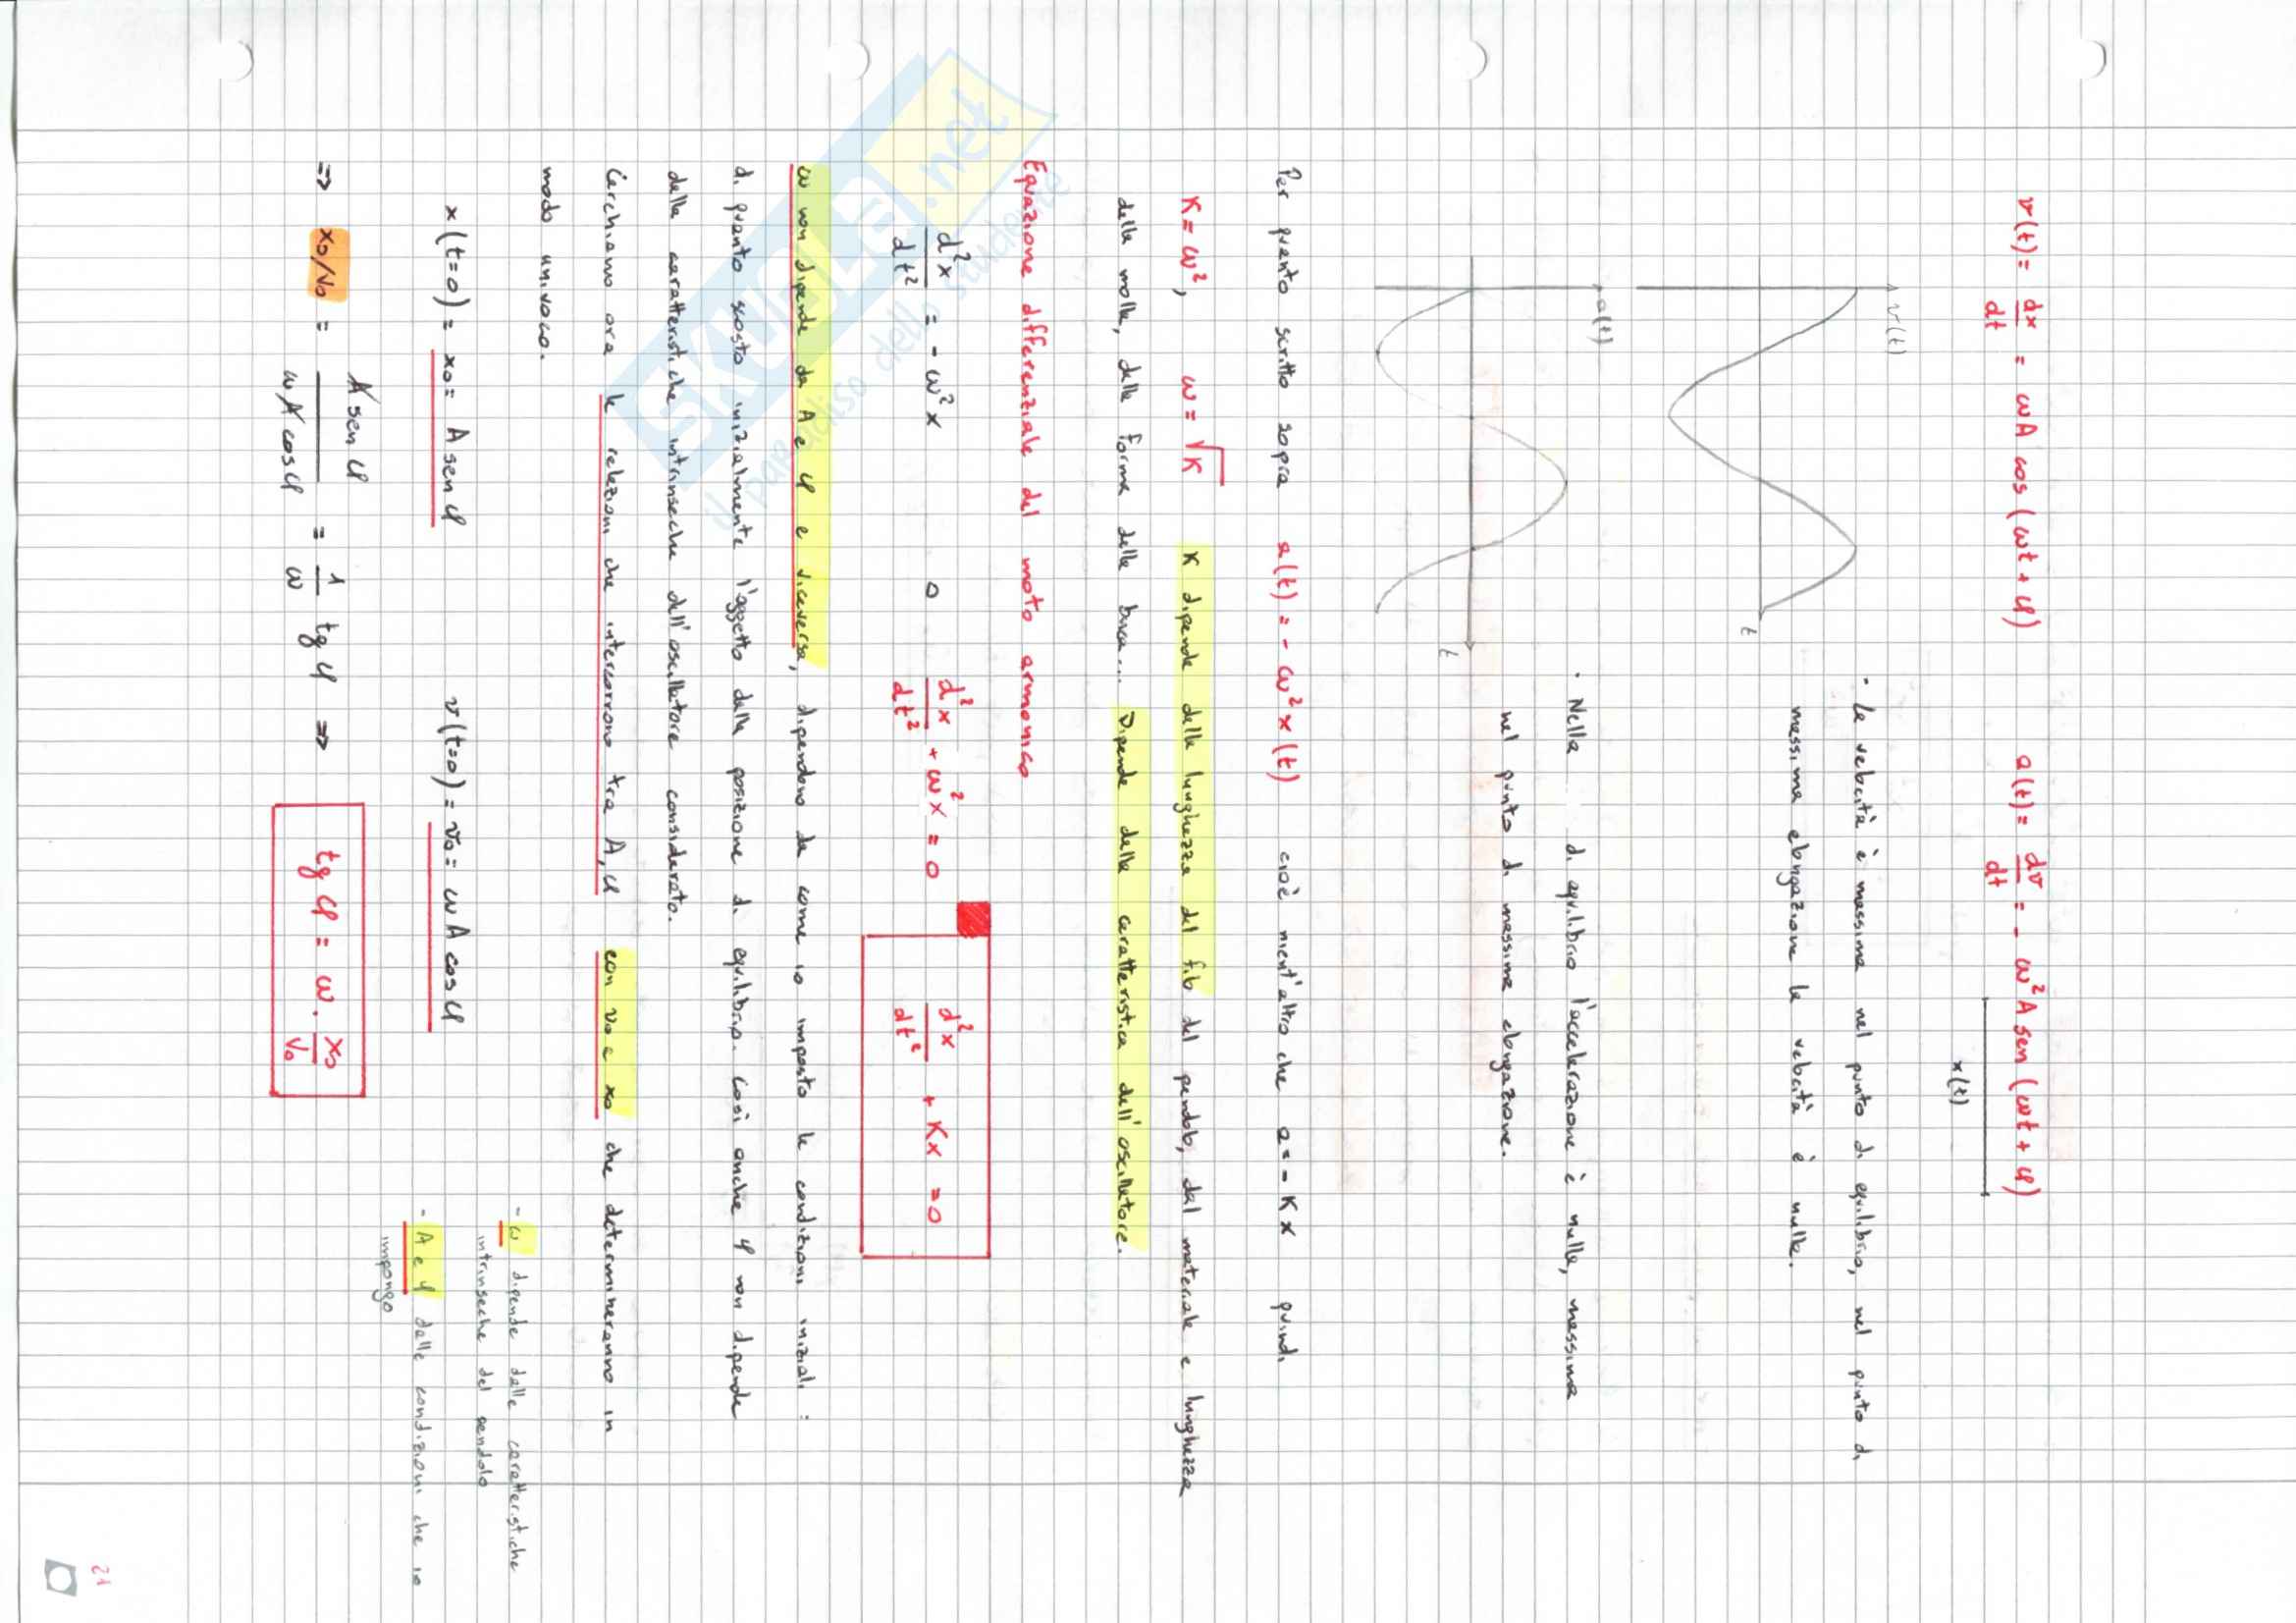 v(t) = dx/dt = ωA cos (ωt + φ)   a(t) = dv/dt = - ω² A sen (ωt + φ)
x(t)
v(t)
t
- La velocità è massima nel punto di equilibrio, nel punto di
massima elongazione la velocità è nulla.
a(t)
t
· Nella di equilibrio l'accelerazione è nulla, massima
nel punto di massima elongazione.
Per quanto scritto sopra a(t) = - ω² x(t) cioè nient'altro che a = - Kx quindi
K = ω², ω = √K K dipende dalla lunghezza del filo del pendolo, dal materiale e lunghezza
della molla, dalla forma della buca... Dipende dalla caratteristica dell'oscillatore.
Equazione differenziale del moto armonico
d²x/dt² = - ω² x   o   d²x/dt² + ω² x = 0   d²x/dt² + Kx = 0
ω non dipende da A e φ e viceversa, dipendono da come io imposto le condizioni iniziali:
di quanto sposto inizialmente l'oggetto dalla posizione di equilibrio. Così anche φ non dipende
dalla caratteristiche intrinseche dell'oscillatore considerato.
Cerchiamo ora le relazioni che intercorrono tra A, φ con v₀ e x₀ che determineranno in
modo univoco.
- ω dipende dalle caratteristiche
intrinseche del pendolo
- A e φ dalle condizioni che io
impongo
x(t=0) = x₀ = A sen φ   v(t=0) = v₀ = ωA cos φ
=> x₀/v₀ = A sen φ / ωA cos φ = 1/ω tg φ => tg φ = ω · x₀/v₀
21
SKUOLA.net
il paradiso dello studente